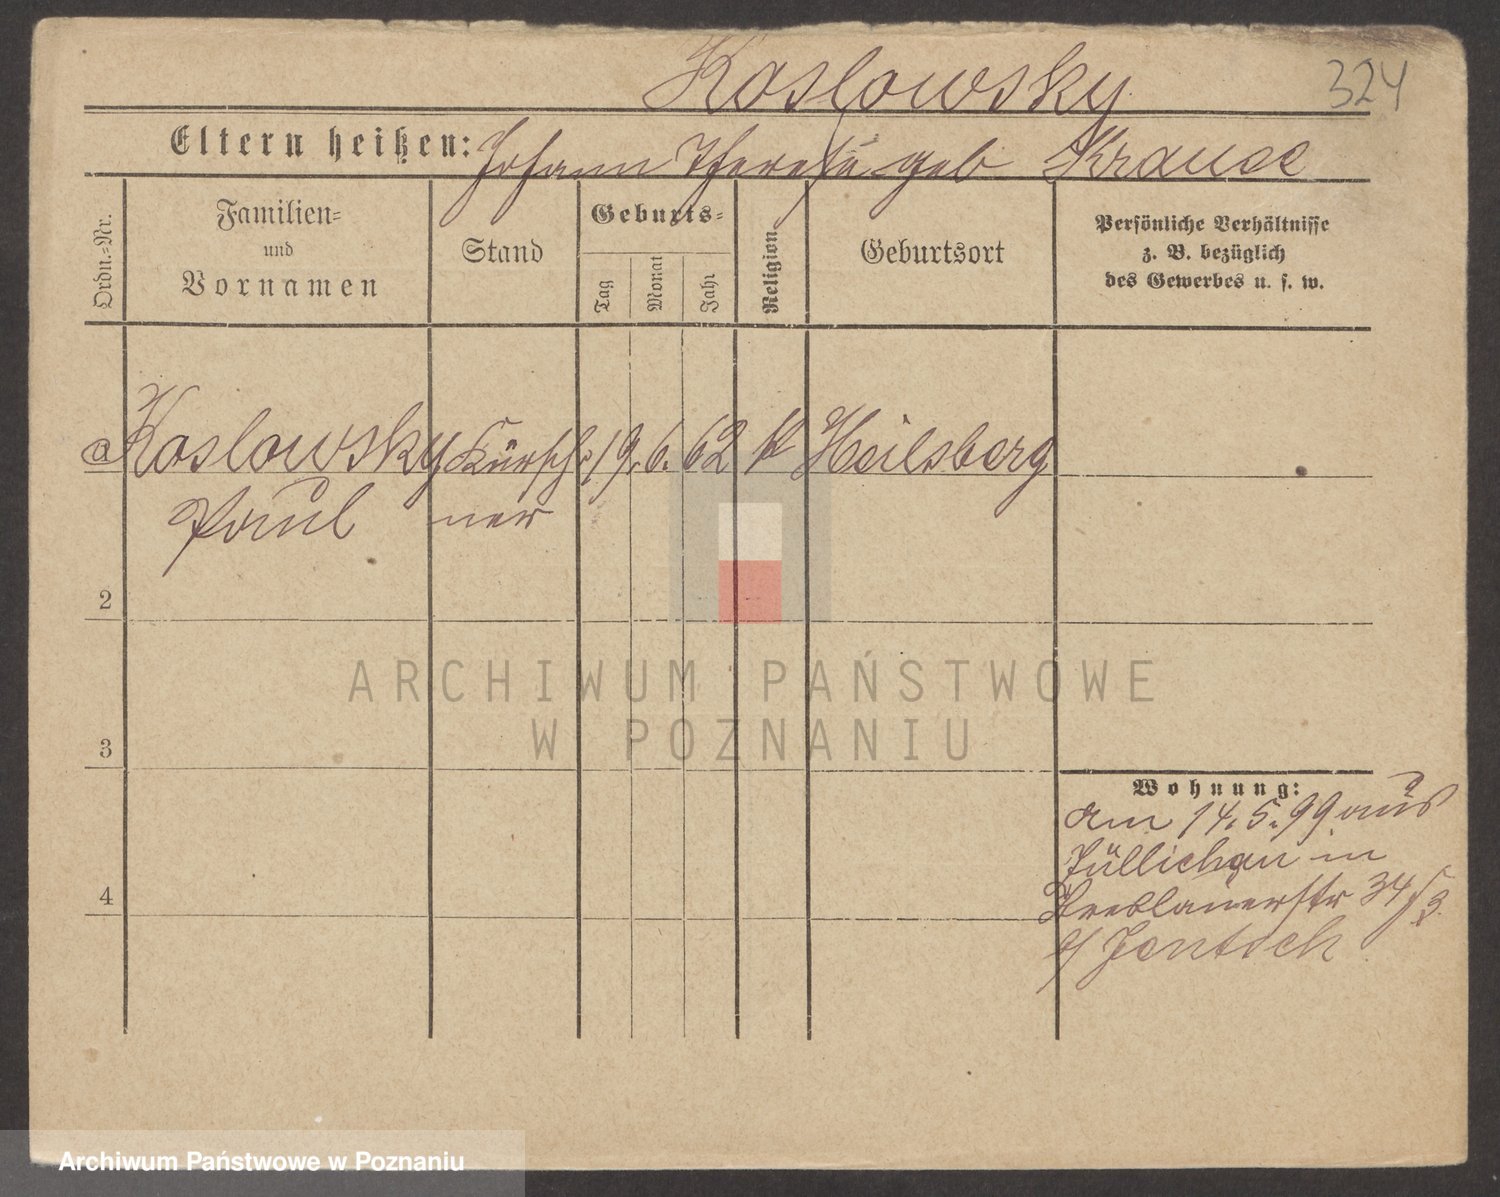 Koslowsky 324
Eltern heißen: Johann Therese geb Krause
Ordn.=Nr.
Familien=
und
Vornamen
Stand
Geburts=
Tag
Monat
Jahr
Religion
Geburtsort
Persönliche Verhältnisse
z. B. bezüglich
des Gewerbes u. s. w.
a Koslowsky Kürsch= 19. 6. 62 k Heilsberg
Paul ner
2
ARCHIWUM PAŃSTWOWE
W POZNANIU
3
Wohnung:
am 14. 5. 99 aus
Züllichau in
Breslauerstr 34
b/ Jentsch
4
Archiwum Państwowe w Poznaniu